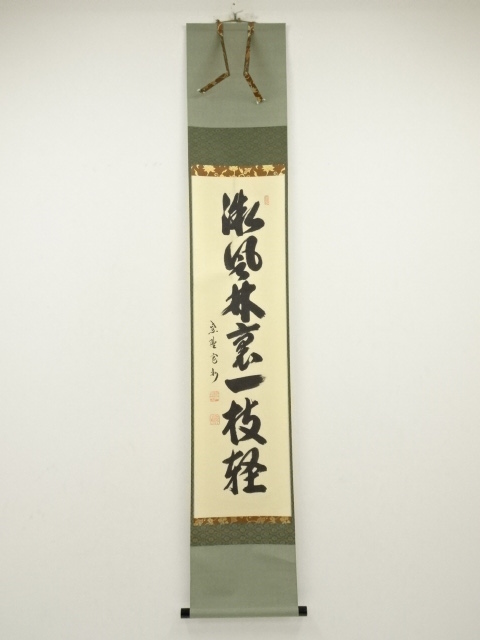 微風林裏一枝軽